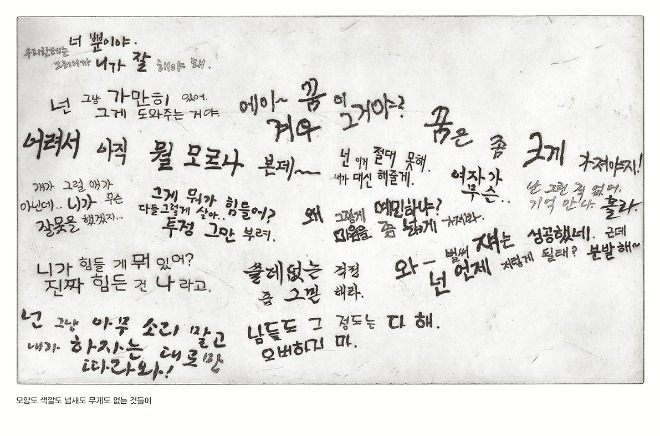 우리한테는 너 뿐이야.
그러니까 니가 잘 해야 돼.
넌 그냥 가만히 있어.
그게 도와주는 거야.
에이~ 꿈이
겨우 그거야?
꿈은 좀 크게 가져야지!
어려서 아직 뭘 모르나 본데~~
넌 이거 절대 못해.
내가 대신 해줄게.
여자가
무슨..
난 그런 적 없어.
기억 안 나. 몰라.
걔가 그럴 애가
아닌데.. 니가 무슨
잘못을 했겠지..
그게 뭐가 힘들어?
다들 그렇게 살아..
투정 그만 부려.
왜 그렇게 예민하냐?
마음을 좀 넓게 가져라.
와- 벌써 쟤는 성공했네. 근데
넌 언제 저렇게 될래? 분발해~
니가 힘들 게 뭐 있어?
진짜 힘든 건 나라고.
쓸데없는 걱정
좀 그만 해라.
넌 그냥 아무 소리 말고
내가 하자는 대로만
따라와!
남들도 그 정도는 다 해.
오버하지 마.
모양도 색깔도 냄새도 무게도 없는 것들이